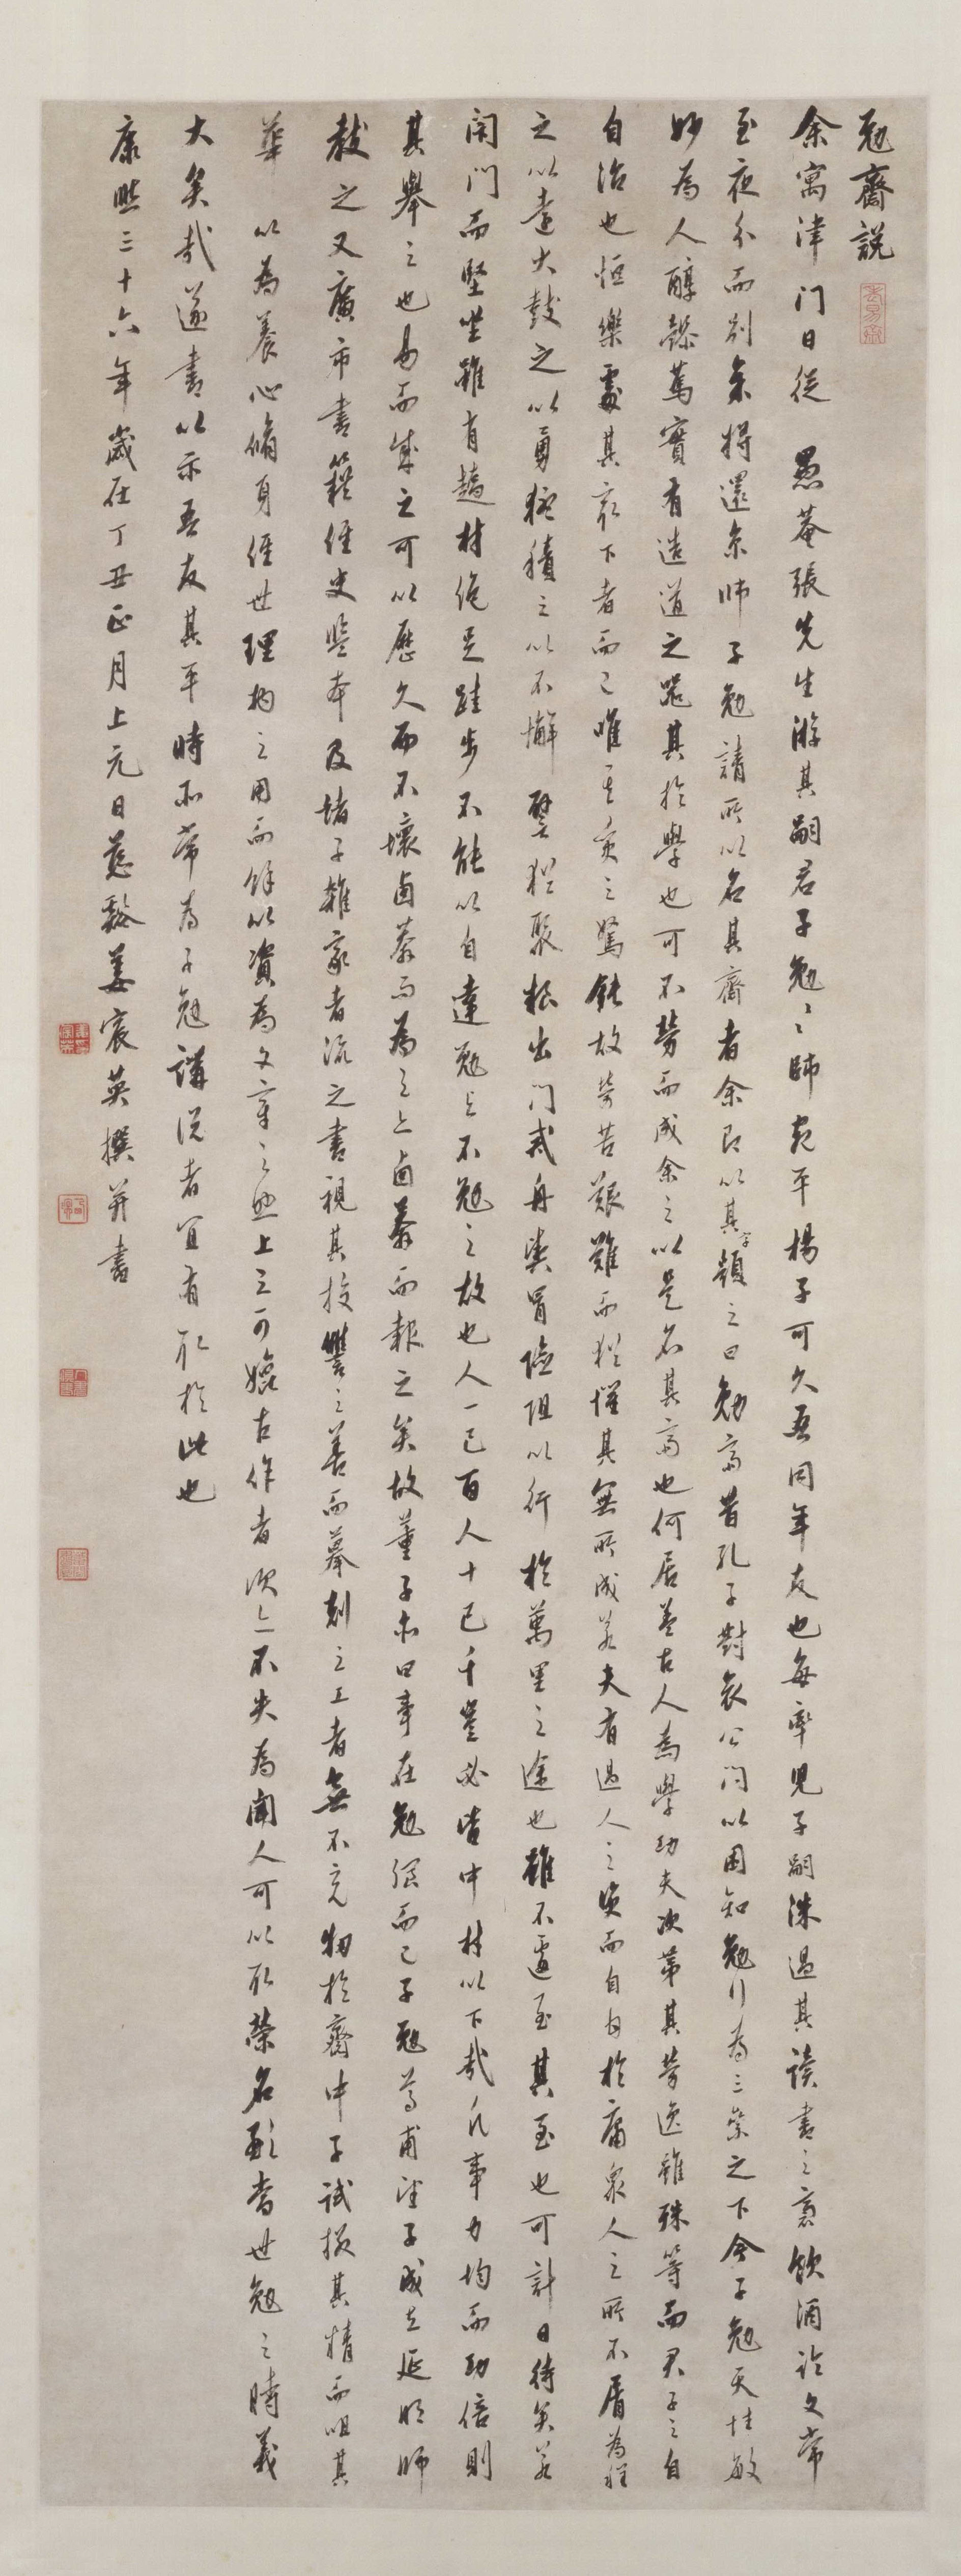 勉齋說
余寓津门日從 愚菴張先生游其嗣君子勉之師宛平楊子可久吾同年友也每率兒子嗣洙過其讀書之裔飲酒論文常
至夜分而別余將還京師子勉請所以名其齋者余即以其字額之曰勉齋昔孔子對哀公问以困知勉行為三等之下今子勉天性敏
妙為人醇謹篤實有造道之器其於學也可不勞而成余之以是名其齋也何居蓋古人為學功夫次第其勞逸雖殊等而君子之自
自治也恒樂處其最下者而已唯其質之駑鈍故勞苦艱難而猶懼其無所成若夫有過人之質而自力於庸衆人之所不屑為程
之以遠大鼓之以勇猛積之以不懈 譬猶聚粮出门戒舟輿冒險阻以行於萬里之途也雖不遽至其至也可計日待矣若
閉门而堅坐雖有趫材絕足跬步不能以自達勉與不勉之故也人一己百人十己千豈必皆中材以下哉凡事力均而功倍則
其舉之也易而成之可以歷久而不壞鹵莽而為之亦鹵莽而報之矣故董子亦曰事在勉强而已子勉尊甫望子成立延明師
教之又廣市書籍經史監本及諸子雜家者流之書視其挍讐之善而摹刻之工者無不充牣於齋中子試掇其精而咀其
華 以為養心脩身經世理物之用而餘以資為文章之照上之可媲古作者次亦不失為聞人可以取榮名於當世勉之時義
大矣哉遂書以示吾友其平時所常為子勉講說者宜有取於此也
康熙三十六年歲在丁丑正月上元日慈谿姜宸英撰并書